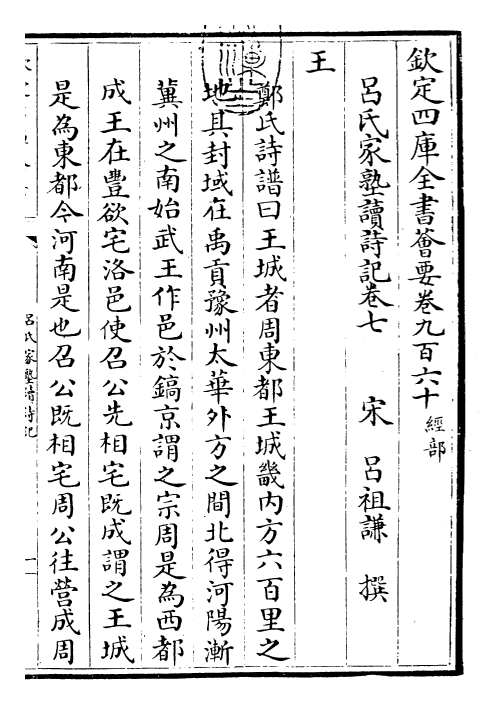 欽定四庫全書薈要卷九百六十 經部
呂氏家塾讀詩記卷七 宋 呂祖謙 撰
王
鄭氏詩譜曰王城者周東都王城畿內方六百里之
地其封域在禹貢豫州太華外方之間北得河陽漸
冀州之南始武王作邑於鎬京謂之宗周是為西都
成王在豐欲宅洛邑使召公先相宅既成謂之王城
是為東都今河南是也召公既相宅周公往營成周
呂氏家塾讀詩記
一